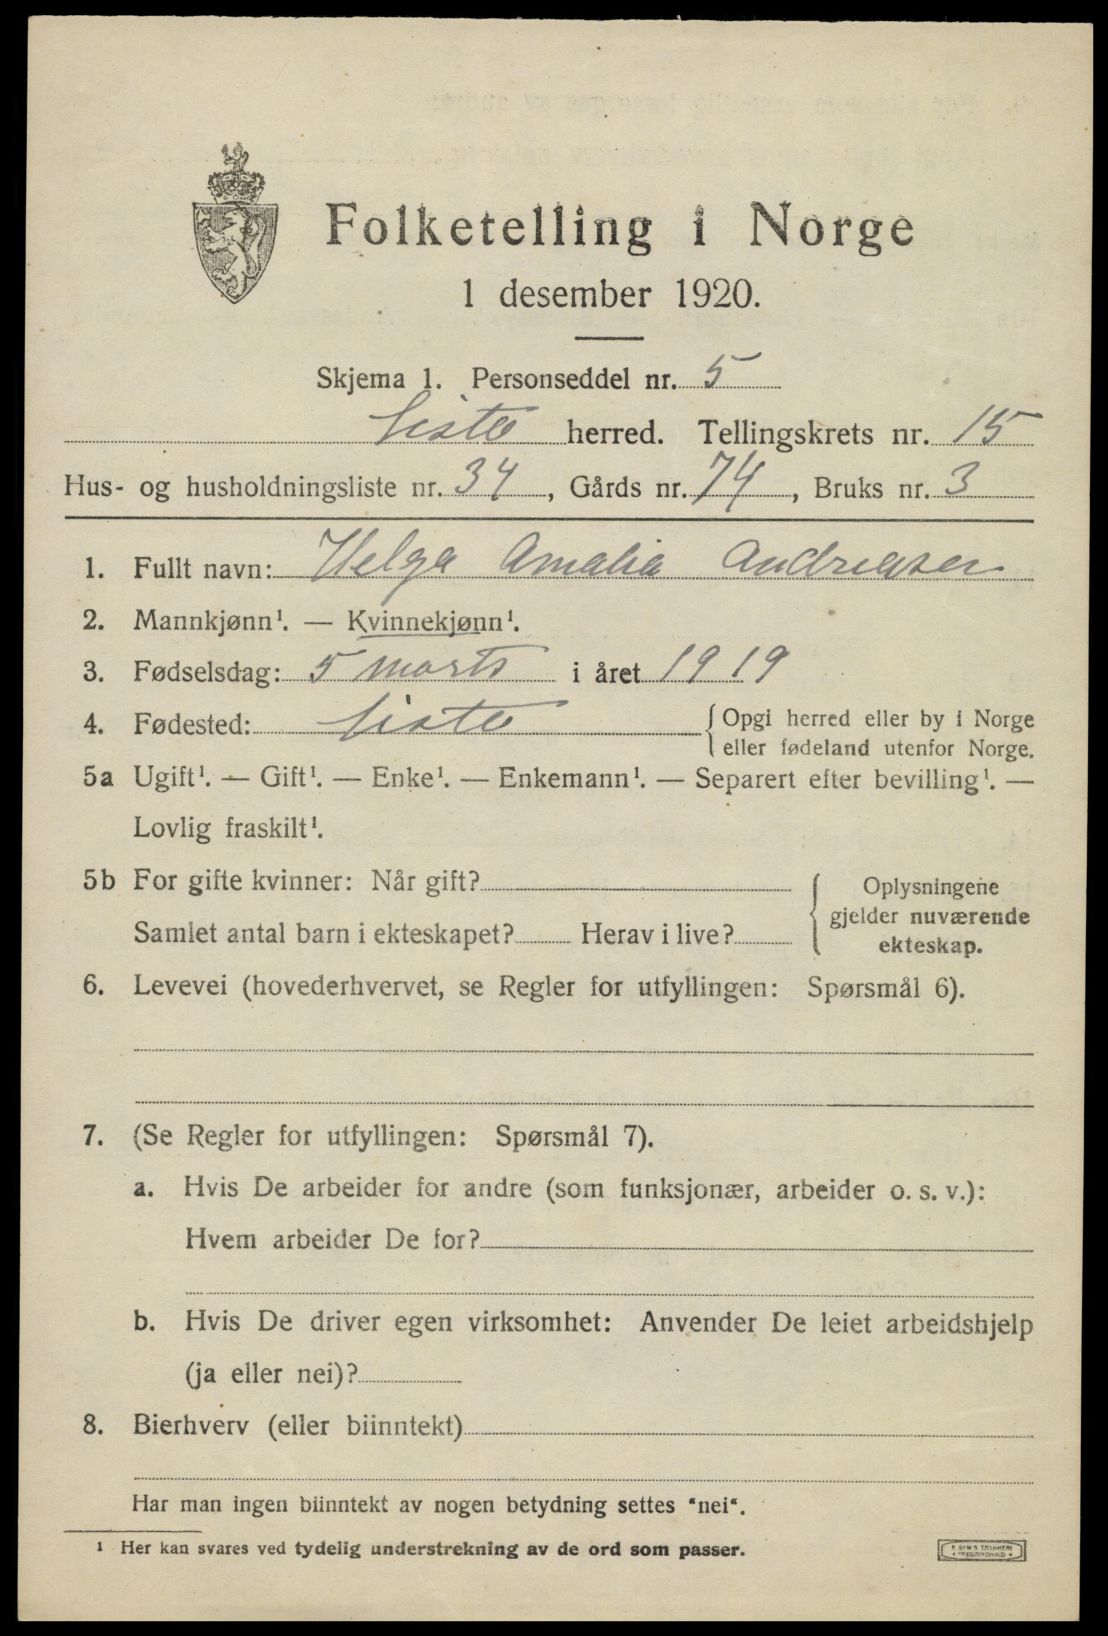 Folketelling i Norge
1 desember 1920.
Skjema 1. Personseddel nr. 5
Liste herred. Tellingskrets nr. 15
Hus- og husholdningsliste nr. 34, Gårds nr. 74, Bruks nr. 3
1. Fullt navn: Helga Amalia Andreasen
2. Mannkjønn¹. — Kvinnekjønn¹.
3. Fødselsdag: 5 marts i året 1919
4. Fødested: Liste {Opgi herred eller by i Norge
eller fødeland utenfor Norge.
5a Ugift¹. — Gift¹. — Enke¹. — Enkemann¹. — Separert efter bevilling¹. —
Lovlig fraskilt¹.
5b For gifte kvinner: Når gift?
Samlet antal barn i ekteskapet? Herav i live?
{Oplysningene
gjelder nuværende
ekteskap.
6. Levevei (hovederhvervet, se Regler for utfyllingen: Spørsmål 6).
7. (Se Regler for utfyllingen: Spørsmål 7).
a. Hvis De arbeider for andre (som funksjonær, arbeider o. s. v.):
Hvem arbeider De for?
b. Hvis De driver egen virksomhet: Anvender De leiet arbeidshjelp
(ja eller nei)?
8. Bierhverv (eller biinntekt)
Har man ingen biinntekt av nogen betydning settes "nei".
¹ Her kan svares ved tydelig understrekning av de ord som passer.